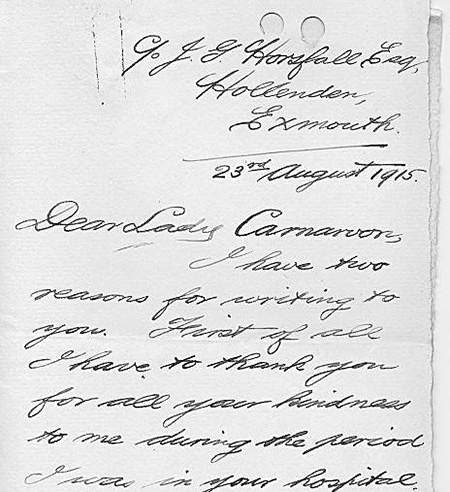 c/o J. G. Horsfall Esq,
Hollenden,
Exmouth.
23rd August 1915.
Dear Lady Carnarvon,
I have two
reasons for writing to
you. First of all
I have to thank you
for all your kindness
to me during the period
I was in your hospital.